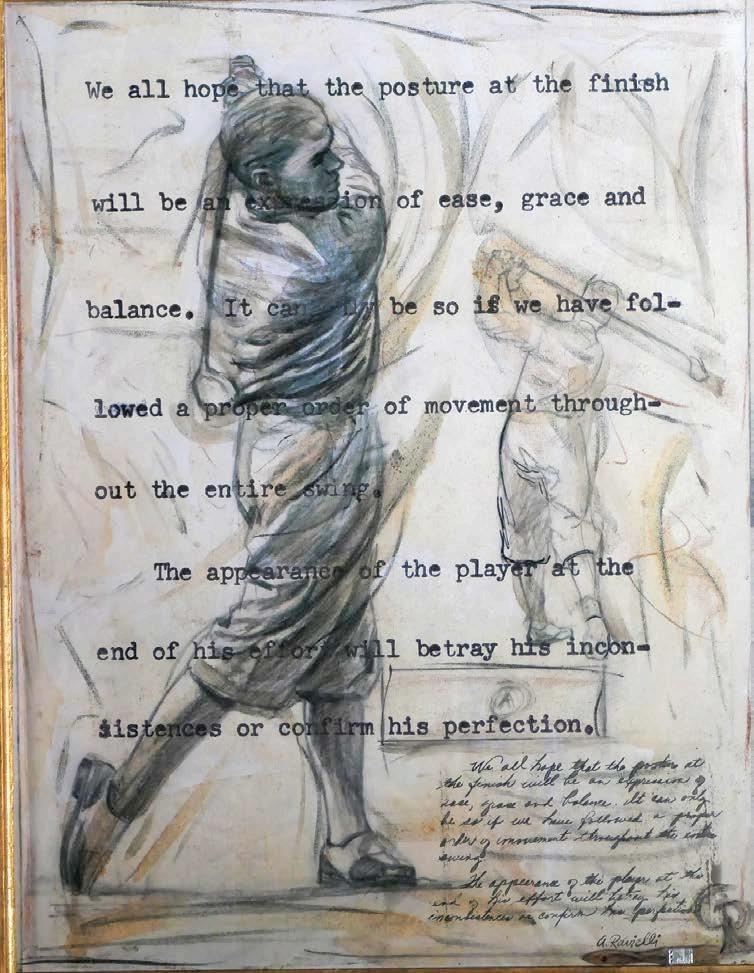 We all hope that the posture at the finish
will be an expression of ease, grace and
balance. It can only be so if we have fol-
lowed a proper order of movement through-
out the entire swing.
The appearance of the player at the
end of his effort will betray his incon-
sistences or confirm his perfection.
We all hope that the posture at
the finish will be an expression of
ease, grace and balance. It can only
be so if we have followed a proper
order of movement throughout the entire
swing.
The appearance of the player at the
end of his effort will betray his
inconsistences or confirm his perfection
A. Ravielli